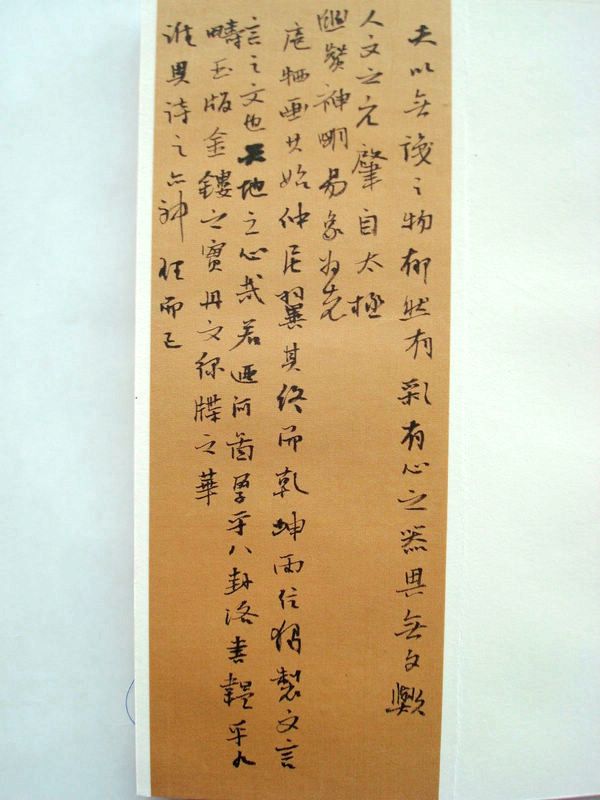 夫以無識之物郁然有彩有心之器其無文歟
人文之元肇自太極
幽贊神明易象为先
庖牺画其始仲尼翼其终而乾坤兩位獨製文言
言之文也天地之心哉若迺河圖孕乎八卦洛書韞乎九
疇玉版金鏤之實丹文綠牒之華
誰其詩之亦神理而已